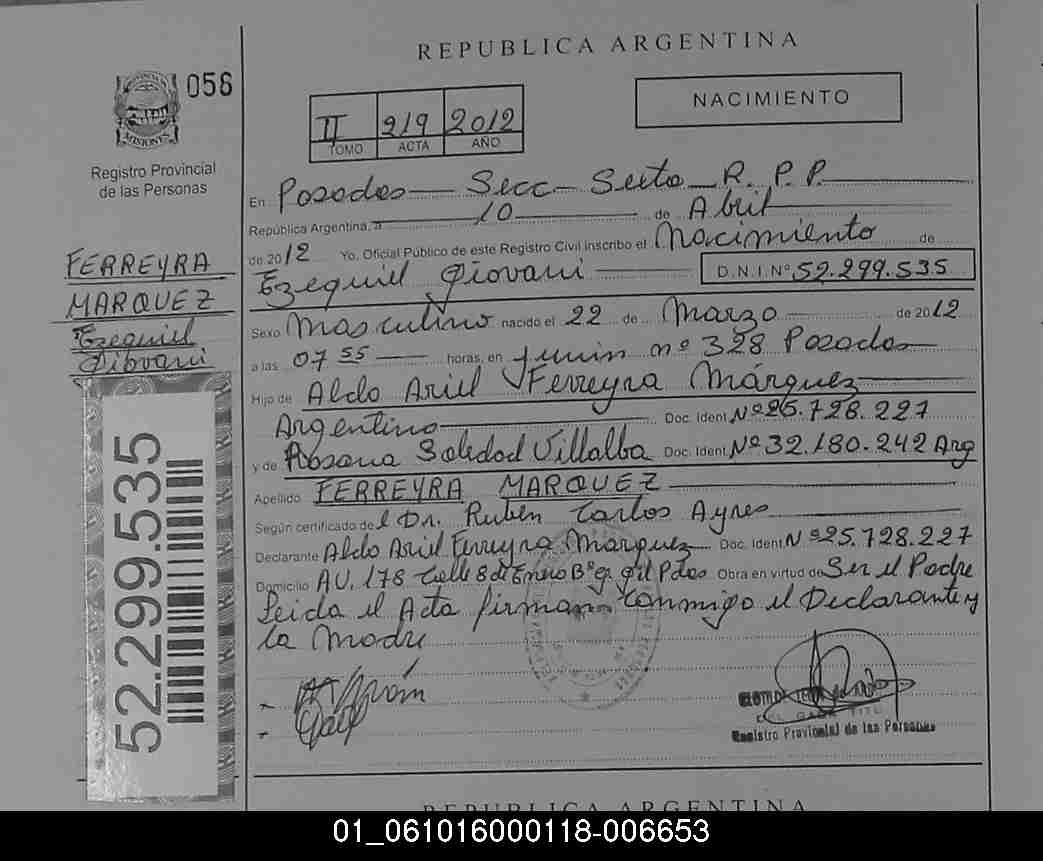 REPUBLICA ARGENTINA
056
NACIMIENTO
II 219 2012
TOMO ACTA AÑO
MISIONES
Registro Provincial
de las Personas
En Posadas Secc Sexta R. P. P.
República Argentina, a 10 de Abril
de 2012 Yo, Oficial Público de este Registro Civil inscribo el Nacimiento de
Ezequiel Giovani D.N.I.Nº 52.299.535
FERREYRA
MARQUEZ
Ezequiel
Giovani
Sexo Masculino nacido el 22 de Marzo de 2012
a las 07 55 horas, en Junin nº 328 Posadas
Hijo de Aldo Ariel Ferreyra Márquez
Argentino Doc. Ident. Nº 25.728.227
y de Rosana Soledad Villalba Doc. Ident. Nº 32.180.242 Arg
Apellido FERREYRA MARQUEZ
Según certificado del Dr. Ruben Carlos Ayres
Declarante Aldo Ariel Ferreyra Marquez Doc. Ident. Nº 25.728.227
Domicilio AV. 178 Calle 8 de Enero Bº Gil Pdas Obra en virtud de Ser el Padre
Leida el Acta firman conmigo el Declarante y
la Madre
52.299.535
Registro Provincial de las Personas
REPUBLICA ARGENTINA
01_061016000118-006653